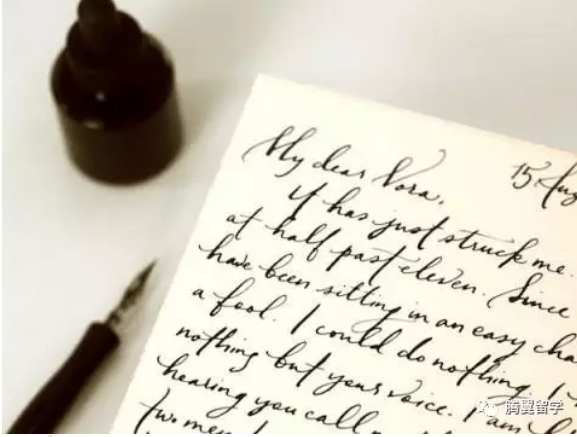 15 Aug
My dear Nora,
It has just struck me.
at half past eleven. Since
have been sitting in an easy cha
a fool. I could do nothing. I
nothing but your voice. I am li
hearing you call
two men I
腾翼留学